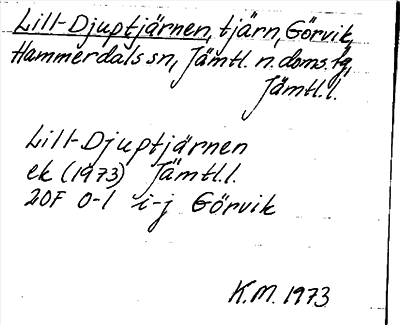 Lill-Djuptjärnen, tjärn, Görvik,
Hammerdals sn, Jämtl. n. doms. tg,
Jämtl. l.
Lill-Djuptjärnen
ek (1973) Jämtl. l.
20F 0-1 i-j Görvik
K.M. 1973